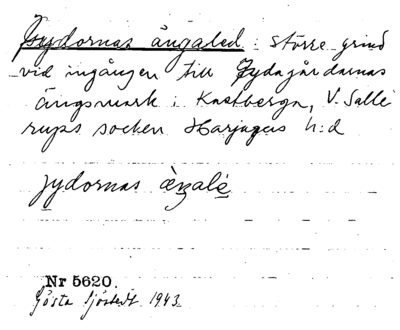 Gydornas ängaled: större grind
vid ingången till Gydagårdarnas
ängsmark i Kastberga, V. Salle
rups socken Harjagers h:d
jydornas ængalé
Nr 5620.
Gösta Sjöstedt 1943.